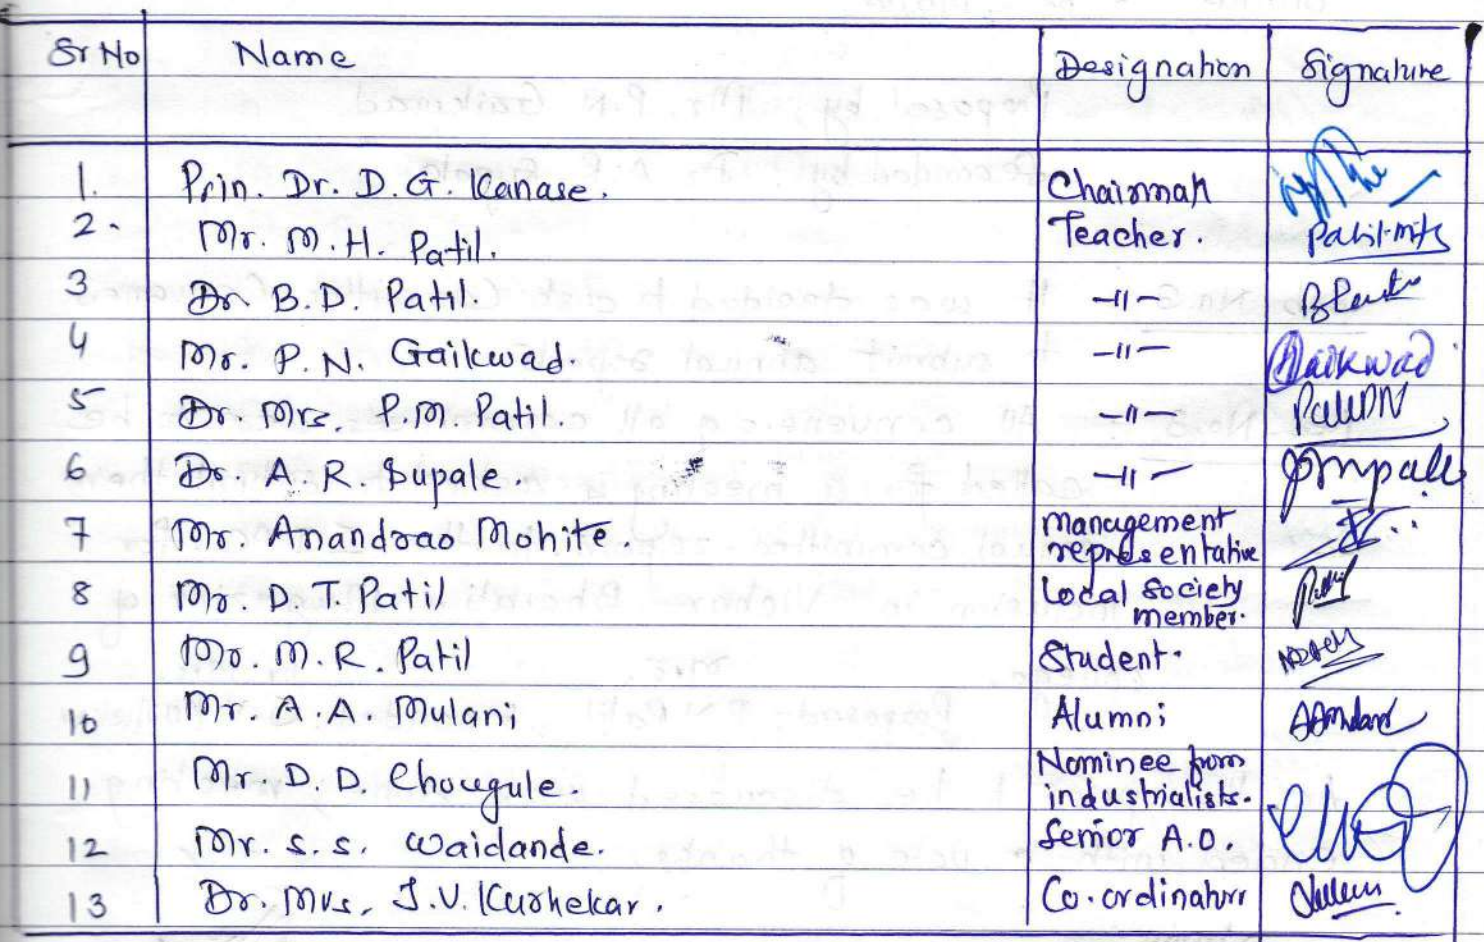 Sr No Name Designation Signature
1. Prin. Dr. D. G. Kanase. Chairman
2. Mr. M. H. Patil. Teacher. Patil-
3 Dr. B.D. Patil. -11-
4 Mr. P. N. Gaikwad. -11- Gaikwad
5 Dr. Mrs. P.M. Patil. -11-
6 Dr. A. R. Supale. -11-
7 Mr. Anandrao Mohite. management
representative
8 Mr. D. T. Patil Local Society
member.
9 Mr. M. R. Patil Student.
10 Mr. A. A. Mulani Alumni
11 Mr. D. D. Chougule. Nominee from
industrialists.
12 Mr. S. S. Waidande. Senior A.O.
13 Dr. Mrs. J. V. Kurhekar. Co-ordinator